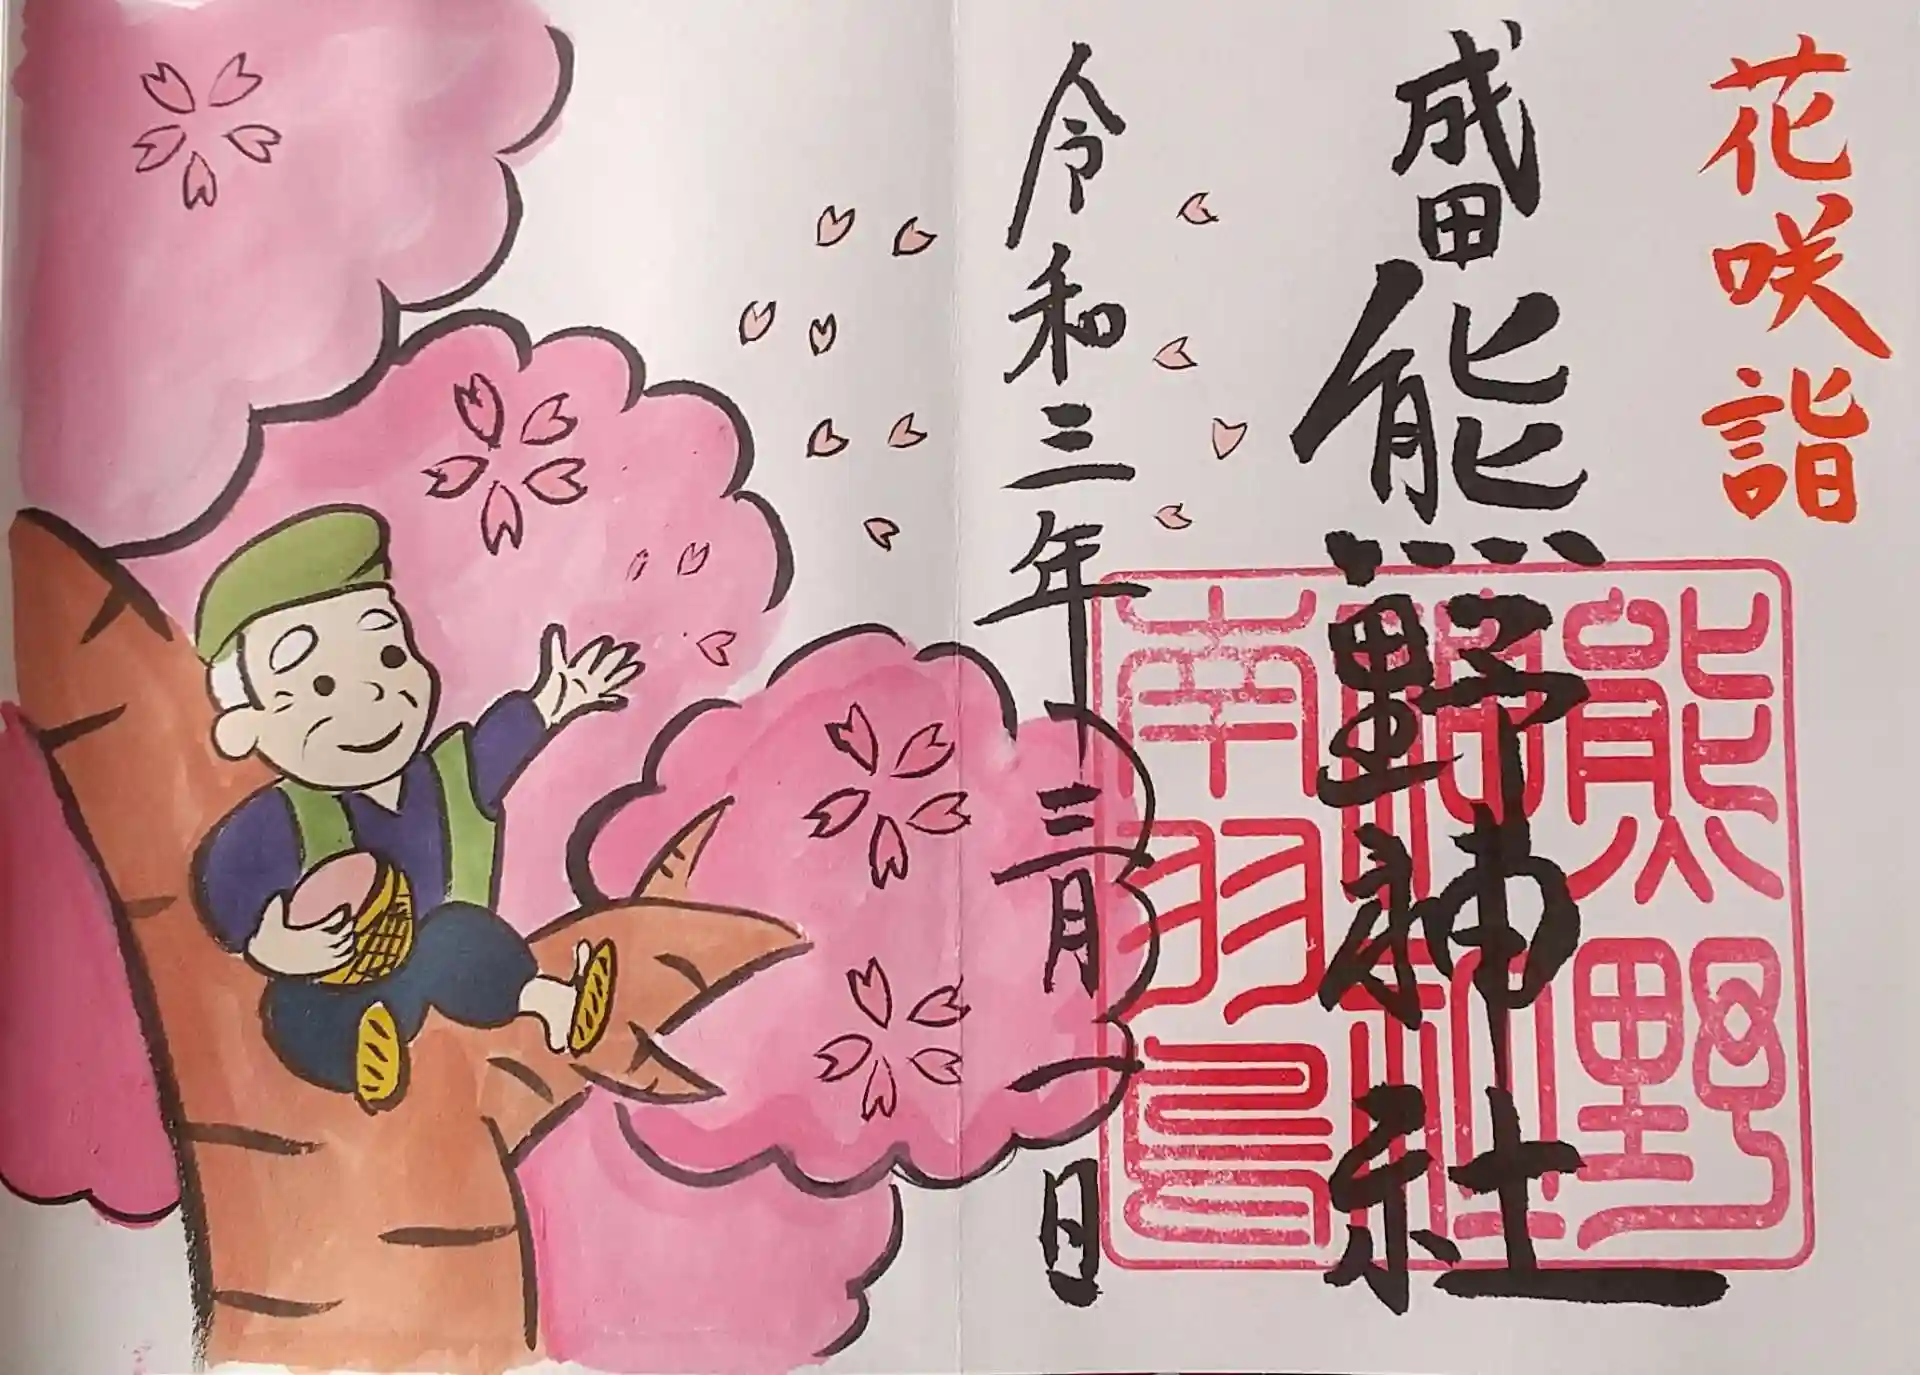 花咲詣
成田熊野神社
熊野
神社
南羽鳥
令和三年三月一日